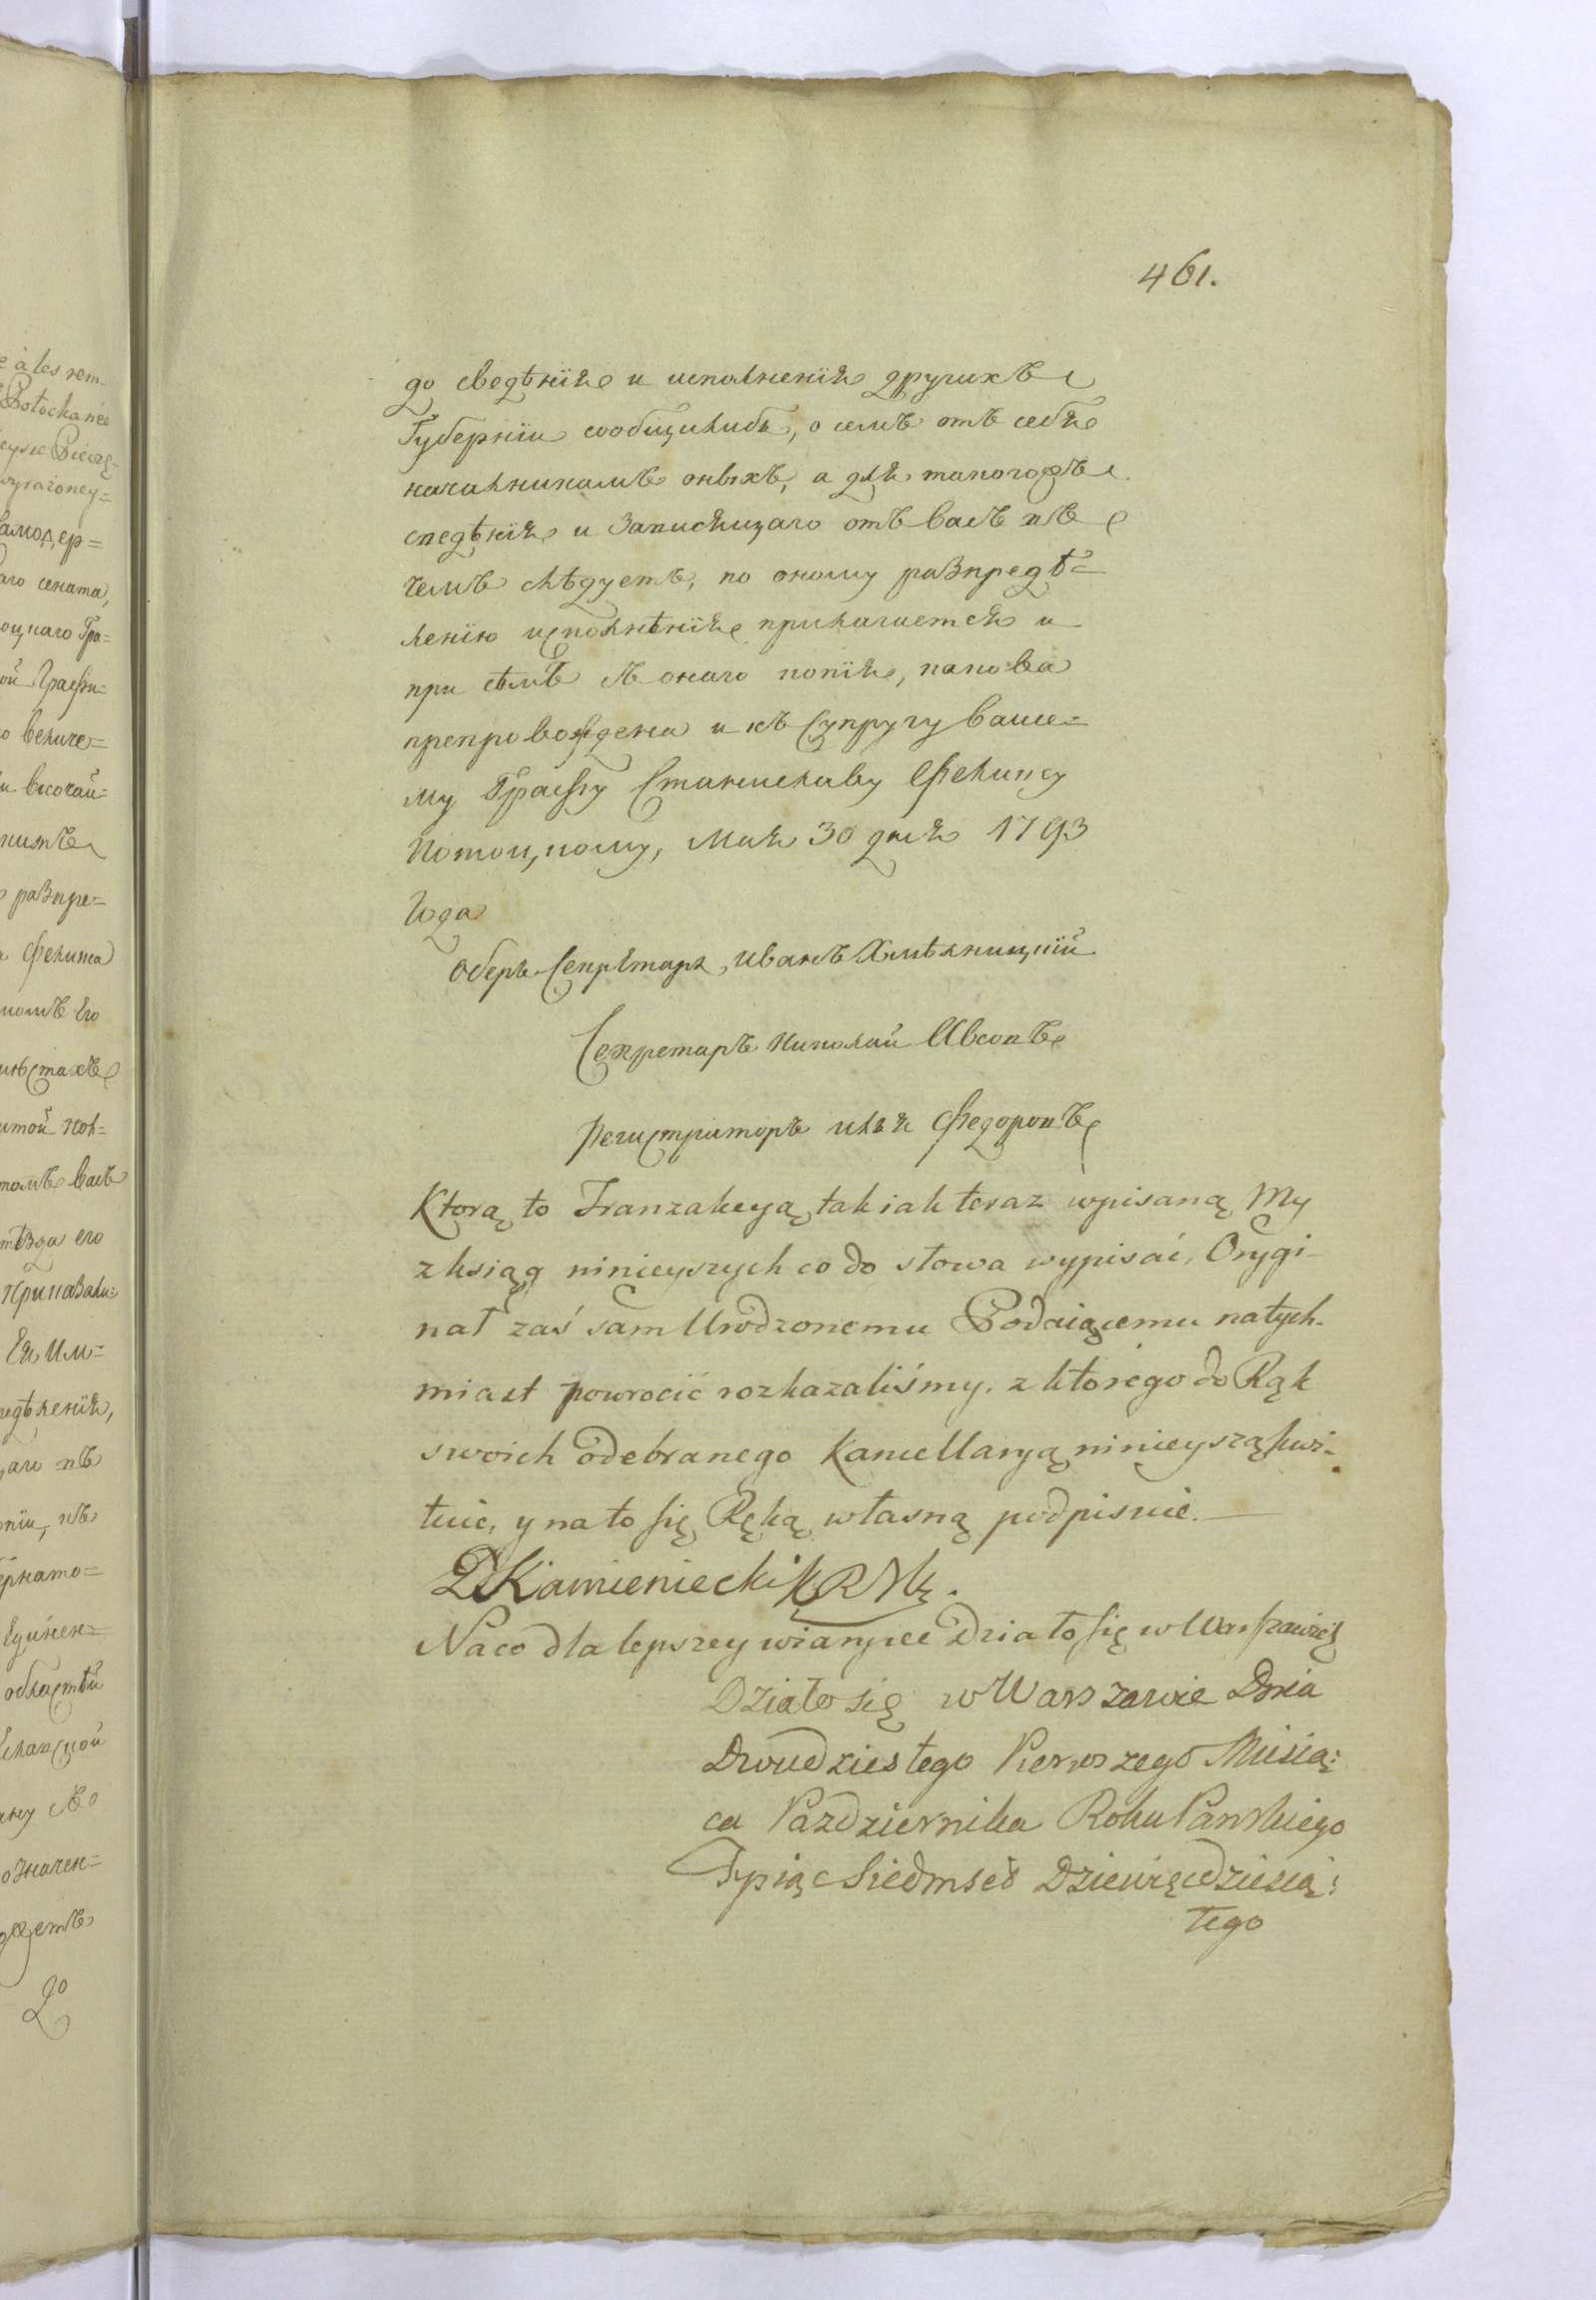 461.
до сведѣнія и исполненія другихъ
Губерніи сообщилибъ, о семъ отъ себя
начальникамъ оныхъ, а для такогожъ
сведѣнія и Записнаго отъ васъ въ
чемъ слѣдуетъ, по оному разпредѣ=
ленію исполнѣнія прилагается и
при сѣмъ съ онаго копія, какова
препровождена и къ Супругу ваше=
му Графу Станиславу Феликсу
Потоцкому, Мая 30 дня 1793
Года
оберъ Секрѣтарь, Иванъ Хмѣлницкій
Секретаръ Николай Ивсовъ
регистраторъ илья Федоровъ
Ktorą to Tranzakcyą tak iak teraz wpisaną My
z ksiąg ninieyszych co do słowa wypisać, Orygi-
nał zaś sam Urodzonemu Podaiącemu natych-
miast powrocić rozkazaliśmy. z ktorego do Rąk
swoich odebranego Kancellaryą ninieyszą kwi-
tuie, y na to się Ręką własną podpisuie.
D Kamieniecki
Na co dla lepszey wiary etc Działo się w Warszawie
Działo się w Warszawie Dnia
Dwudziestego Pierwszego Miesią:
ca Pazdziernika Roku Pańskiego
Tysiąc Siedmset Dziewięcdziesią:
tego
e à les rem-
Potockanée
wyrażoney=
амодер=
аго сената,
оцкаго Гра=
ой Графи=
о величе=
и высочай=
разпре=
Феликса
комъ Его
имѣстахъ
томъ васъ
отъѣзда его
приказали:
Ея Им=
редѣленія,
аго въ
ернато=
областѣй
означен=
до